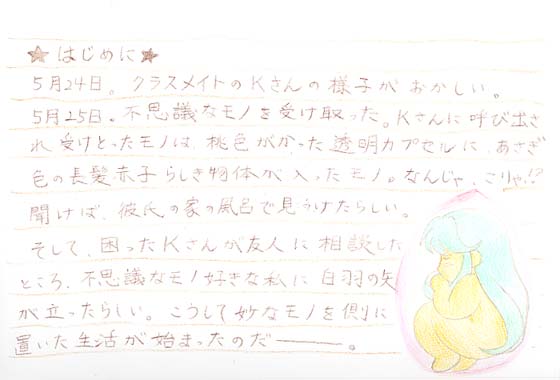 ★はじめに★
5月24日。クラスメイトのKさんの様子がおかしい。
5月25日。不思議なモノを受け取った。Kさんに呼び出さ
れ受けとったモノは、桃色がかった透明カプセルに、あさぎ
色の長髪赤子らしき物体が入ったモノ。なんじゃ、こりゃ!?
聞けば、彼氏の家の風呂で見つけたらしい。
そして、困ったKさんが友人に相談した
ところ、不思議なモノ好きな私に白羽の矢
が立ったらしい。こうして妙なモノを側に
置いた生活が始まったのだ―――。